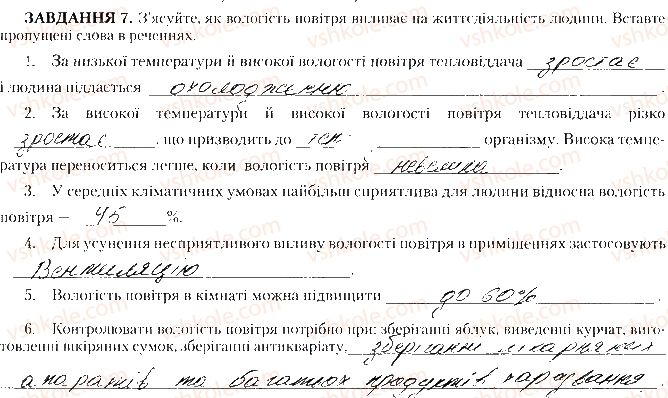 ЗАВДАННЯ 7. З'ясуйте, як вологість повітря впливає на життєдіяльність людини. Вставте
пропущені слова в реченнях.
1. За низької температури й високої вологості повітря тепловіддача зростає
і людина піддається охолодженню.
2. За високої температури й високої вологості повітря тепловіддача різко
зростає, що призводить до теп організму. Висока темпе-
ратура переноситься легше, коли вологість повітря невелика.
3. У середніх кліматичних умовах найбільш сприятлива для людини відносна вологість
повітря – 45 %.
4. Для усунення несприятливого впливу вологості повітря в приміщеннях застосовують
вентиляцію.
5. Вологість повітря в кімнаті можна підвищити до 60%.
6. Контролювати вологість повітря потрібно при: зберіганні яблук, виведенні курчат, виго-
товленні шкіряних сумок, зберіганні антикваріату, зберіганні лікарняних
апаратів та багатьох продуктів харчування.